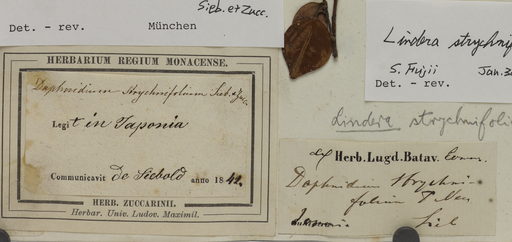 Sieb. et Zucc.
Det. - rev. München
HERBARIUM REGIUM MONACENSE.
Daphnidium strychnifolium Sieb. & Zucc.
Legit in Japonia
Communicavit de Siebold anno 1842.
HERB. ZUCCARINII.
Herbar. Univ. Ludov. Maximil.
Lindera strychnif
S. Fujii Jan. 
Det. - rev.
Lindera strychnifoli
Herb. Lugd. Batav.
Daphnidium strychni-
folium